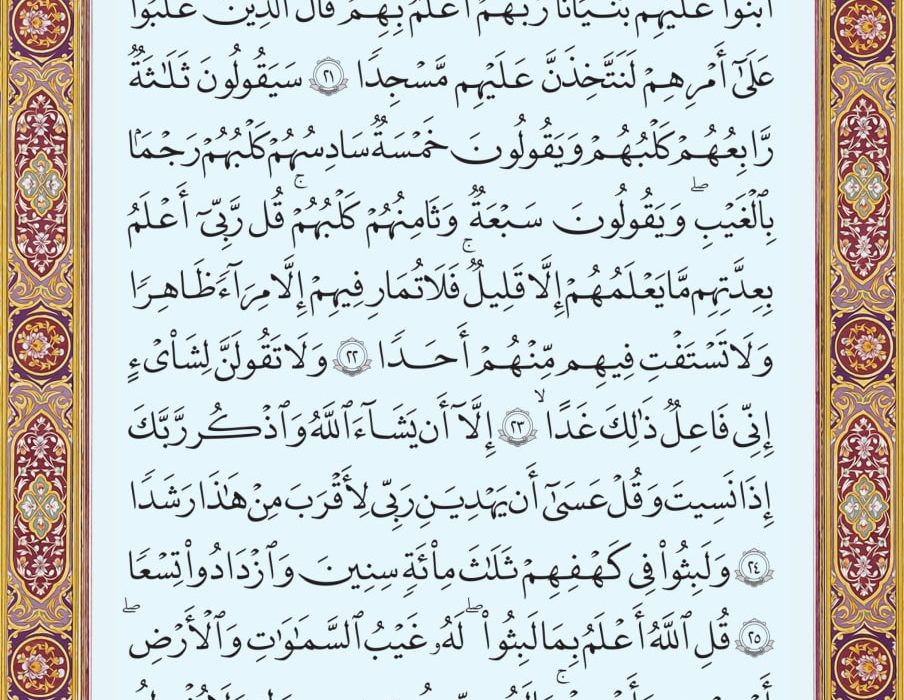 ٱبۡنُواْ عَلَيۡهِم بُنۡيَٰنٗاۖ رَّبُّهُمۡ أَعۡلَمُ بِهِمۡۚ قَالَ ٱلَّذِينَ غَلَبُواْ
عَلَىٰٓ أَمۡرِهِمۡ لَنَتَّخِذَنَّ عَلَيۡهِم مَّسۡجِدٗا ٢١ سَيَقُولُونَ ثَلَٰثَةٞ
رَّابِعُهُمۡ كَلۡبُهُمۡ وَيَقُولُونَ خَمۡسَةٞ سَادِسُهُمۡ كَلۡبُهُمۡ رَجۡمَۢا
بِٱلۡغَيۡبِۖ وَيَقُولُونَ سَبۡعَةٞ وَثَامِنُهُمۡ كَلۡبُهُمۡۚ قُل رَّبِّيٓ أَعۡلَمُ
بِعِدَّتِهِم مَّا يَعۡلَمُهُمۡ إِلَّا قَلِيلٞۗ فَلَا تُمَارِ فِيهِمۡ إِلَّا مِرَآءٗ ظَٰهِرٗا
وَلَا تَسۡتَفۡتِ فِيهِم مِّنۡهُمۡ أَحَدٗا ٢٢ وَلَا تَقُولَنَّ لِشَاْيۡءٍ
إِنِّي فَاعِلٞ ذَٰلِكَ غَدًا ٢٣ إِلَّآ أَن يَشَآءَ ٱللَّهُۚ وَٱذۡكُر رَّبَّكَ
إِذَا نَسِيتَ وَقُلۡ عَسَىٰٓ أَن يَهۡدِيَنِ رَبِّي لِأَقۡرَبَ مِنۡ هَٰذَا رَشَدٗا
٢٤ وَلَبِثُواْ فِي كَهۡفِهِمۡ ثَلَٰثَ مِاْئَةٖ سِنِينَ وَٱزۡدَادُواْ تِسۡعٗا
٢٥ قُلِ ٱللَّهُ أَعۡلَمُ بِمَا لَبِثُواْۖ لَهُۥ غَيۡبُ ٱلسَّمَٰوَٰتِ وَٱلۡأَرۡضِۖ